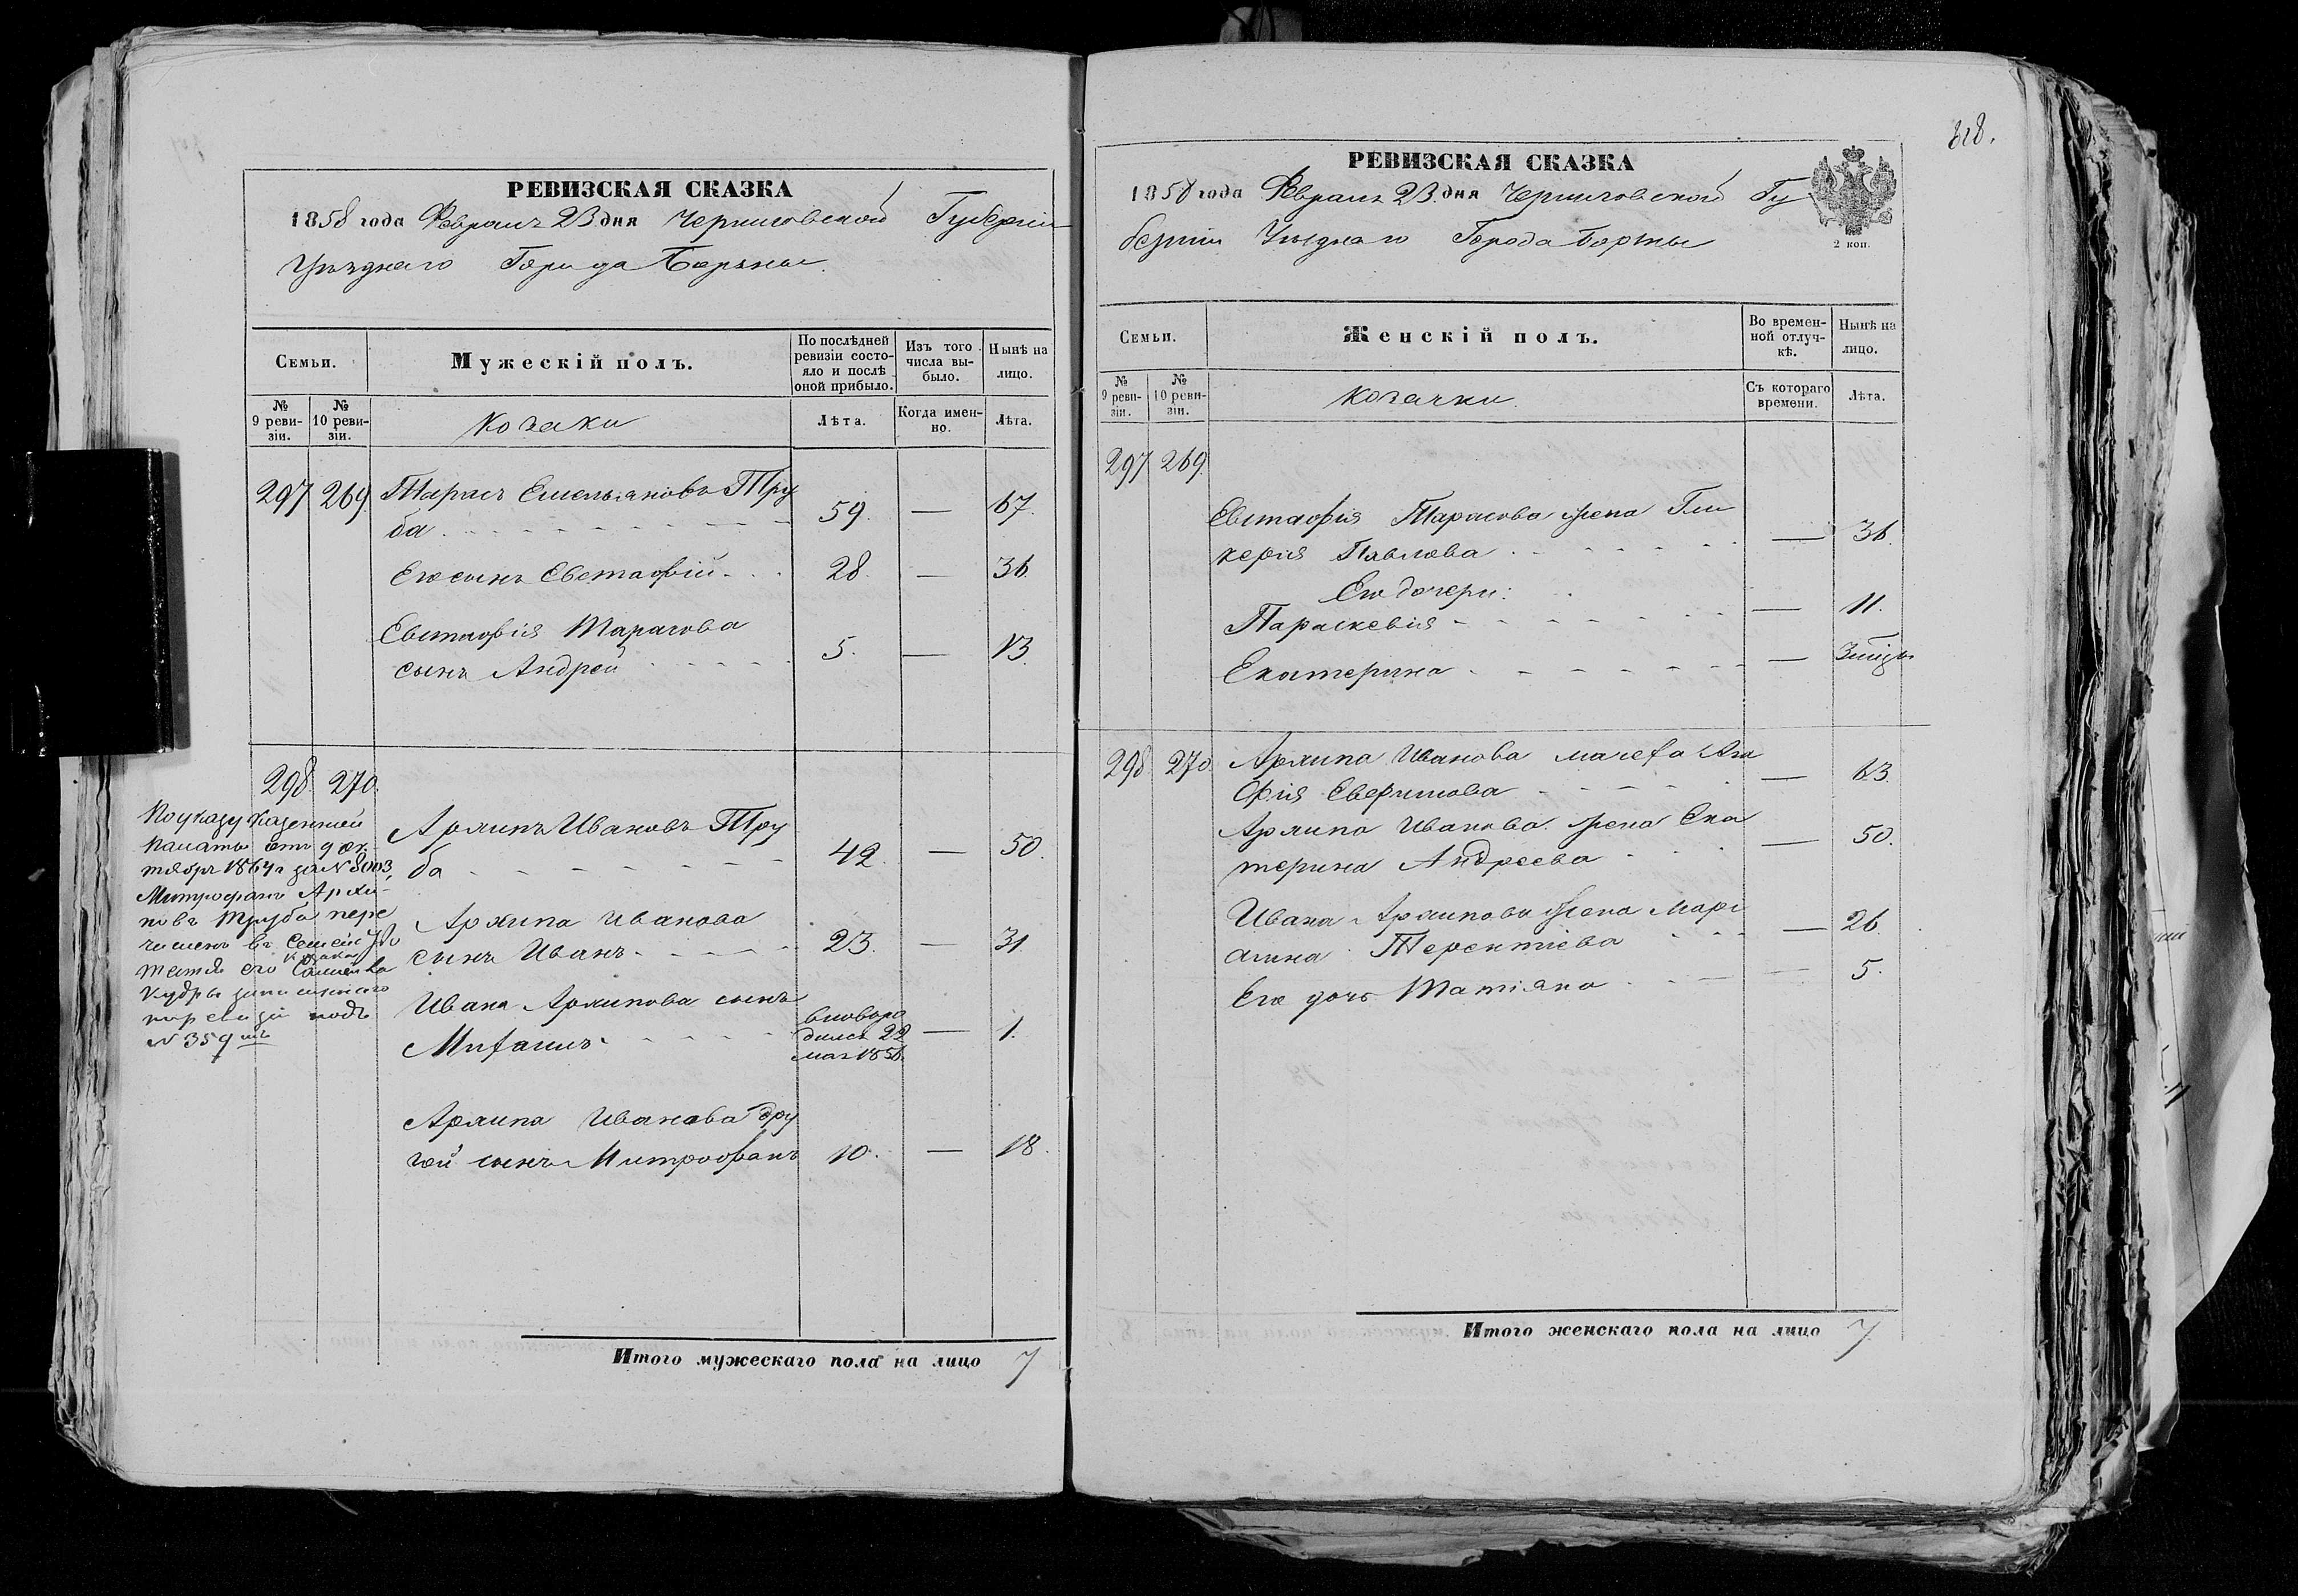 РЕВИЗСКАЯ СКАЗКА
1858 года Февраля 23 дня Черниговской Губерніи
Уѣзднаго Города Борзны
Семьи.
Мужескій полъ.
По послѣдней ревизіи состояло и послѣ оной прибыло.
Изъ того числа выбыло.
Нынѣ на лицо.
№ 9 ревизіи.
№ 10 ревизіи.
Козаки
Лѣта.
Когда именно.
Лѣта.
297 269 Тарасъ Емельяновъ Тру
ба 59. — 67.
Его сынъ Евстафій 28. — 36.
Евстафія Тарасова
сынъ Андрей 5. — 13.
298. 270.
По указу Казенной
Палаты отъ 9 ок
тября 1864 г за № 8003,
Митрофанъ Архи-
повъ Труба пере
численъ въ семейство
тестя его козака
Кудры
по ревизіи подъ
№ 359 мъ
Архипъ Ивановъ Тру
ба 42. — 50.
Архипа Иванова
сынъ Иванъ 23. — 31
Ивана Архипова сынъ
вновь ро
дился 22
мая 1856. — 1.
Архипа Иванова дру
гой сынъ Митрофанъ 10. — 18.
Итого мужескаго пола на лицо 7
818.
РЕВИЗСКАЯ СКАЗКА
1858 года Февраля 23 дня Черниговской Гу
берніи Уѣзднаго Города Борзны
2 коп.
Семьи.
Женскій полъ.
Во временной отлучкѣ.
Нынѣ на лицо.
№ 9 ревизіи.
№ 10 ревизіи.
Козачки
Съ котораго времени.
Лѣта.
297 269.
Евстафія Тарасова жена Гли
керія Павлова — 36.
Его дочери:
Параскевія — 11.
Екатерина —
298 270. Архипа Иванова мачеха Ага
фія — 63.
Архипа Иванова жена Ека
терина Андреева — 50.
Ивана Архипова жена Марі
Терентіева — 26.
Его дочь Татіяна — 5.
Итого женскаго пола на лицо 7